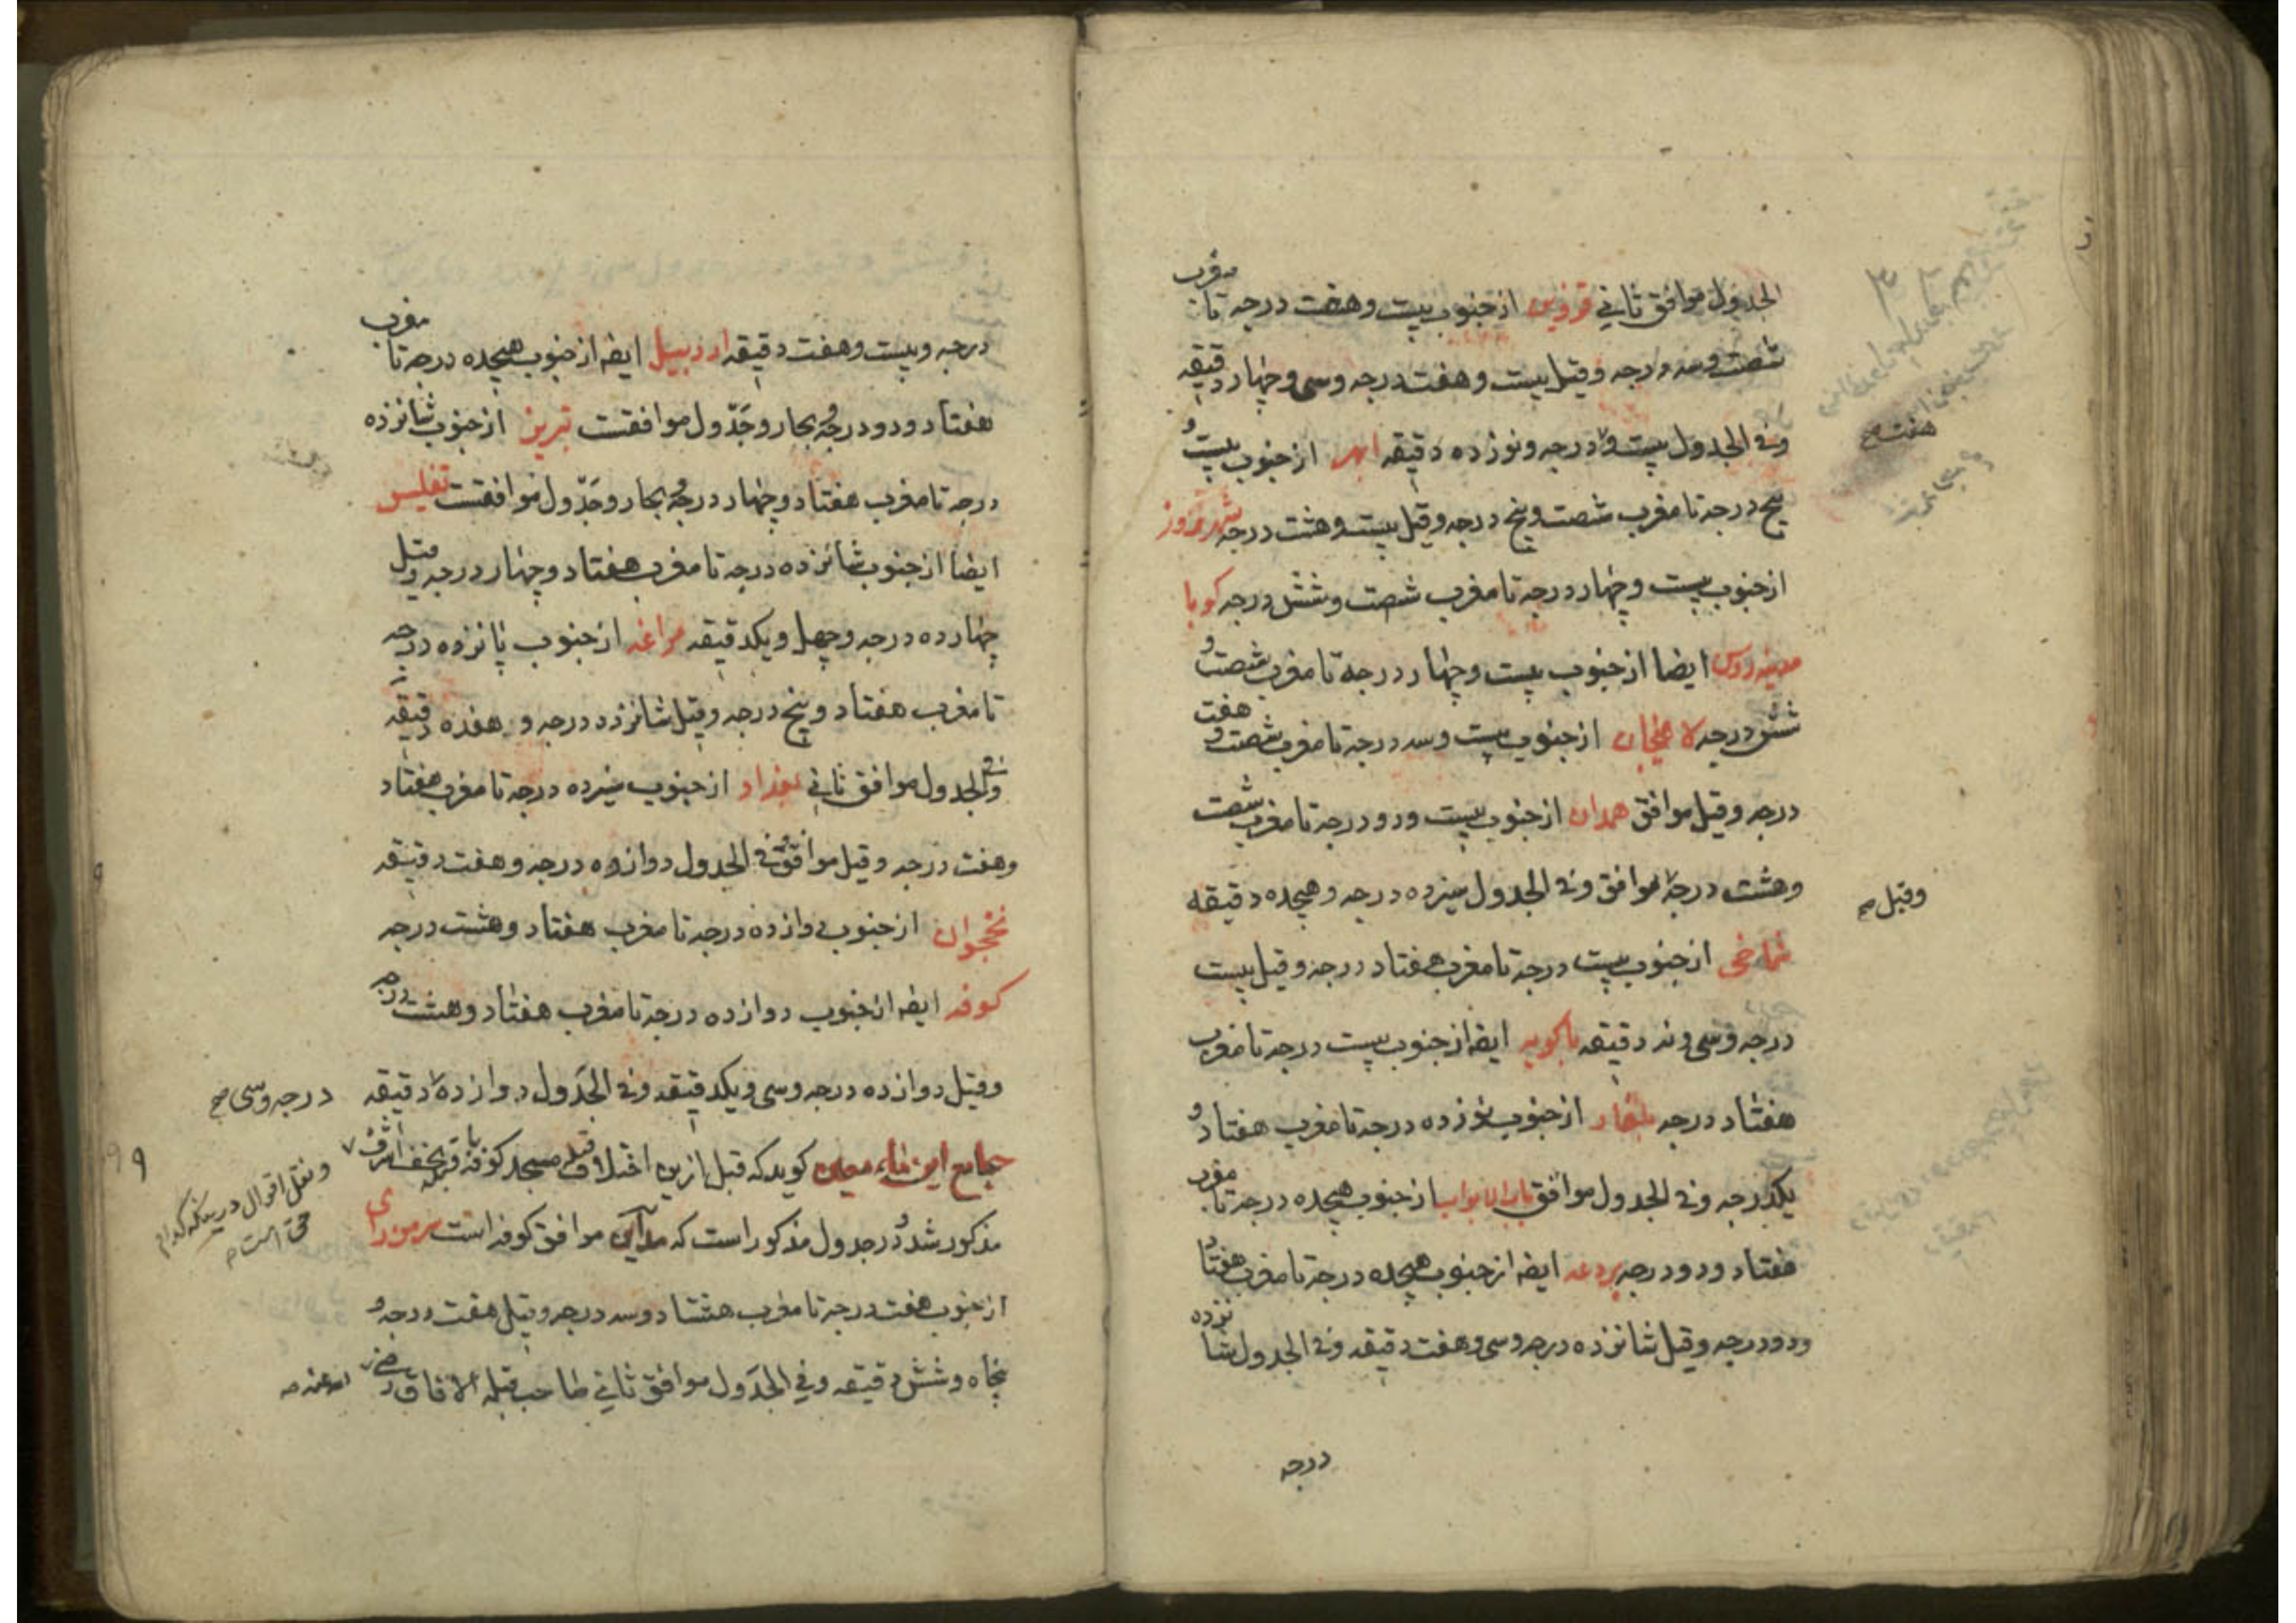 الجدول موافق ثاني قزوین از جنوب بیست و هفت درجه تا مغرب
شصت و سه درجه و قیل بیست و هفت درجه و سی و چهار دقیقه
و فی الجدول بیست و درجه و نوزده دقیقه ابهر از جنوب بیست و
پنج درجه تا مغرب شصت و پنج درجه و قیل بیست و هشت درجه
از جنوب بیست و چهار درجه تا مغرب شصت و شش درجه کوبا
مدینه روس ایضا از جنوب بیست و چهار درجه تا مغرب شصت و
شش درجه لاهیجان از جنوب بیست و سه درجه تا مغرب شصت و هفت
درجه و قیل موافق همدان از جنوب بیست و دو درجه تا مغرب شصت
و هشت درجه موافق و فی الجدول سیزده درجه و هیجده دقیقه
شماخی از جنوب بیست درجه تا مغرب هفتاد درجه و قیل بیست
درجه و سی و نه دقیقه باکویه ایضه از جنوب بیست درجه تا مغرب
هفتاد درجه بلغار از جنوب نوزده درجه تا مغرب هفتاد و
یکدرجه و فی الجدول موافق باب الابواب از جنوب هیجده درجه تا مغرب
هفتاد و دو درجه بردعه ایضه از جنوب هیجده درجه تا مغرب هفتاد
و دو درجه و قیل شانزده درجه و سی و هفت دقیقه و فی الجدول شانزده
درجه
هفت صح
و قیل صح
درجه و بیست و هفت دقیقه اردبیل ایضه از جنوب هیجده درجه تا مغرب
هفتاد و دو درجه و جدول موافقست تبریز از جنوب شانزده
درجه تا مغرب هفتاد و چهار درجه و جدول موافقست تفلیس
ایضا از جنوب شانزده درجه تا مغرب هفتاد و چهار درجه و قیل
چهارده درجه و چهل و یکدقیقه مراغه از جنوب پانزده درجه
تا مغرب هفتاد و پنج درجه و قیل شانزده درجه و هفده دقیقه
و فی الجدول موافق ثانی بغداد از جنوب سیزده درجه تا مغرب هفتاد
و هفت درجه و قیل موافق و فی الجدول دوازده درجه و هفت دقیقه
نخجوان از جنوب دوازده درجه تا مغرب هفتاد و هشت درجه
کوفه ایضه از جنوب دوازده درجه تا مغرب هفتاد و هشت درجه
و قیل دوازده درجه و سی و یکدقیقه و فی الجدول دوازده دقیقه
جامع این گوید که قبل ازین اختلاف قبله مسجد کوفه با قبله نجف اشرف
مذکور شد و در جدول مذکور است که مداین موافق کوفه است سرمن رای
از جنوب هفت درجه تا مغرب هشتاد و سه درجه و قیل هفت درجه و
پنجاه و شش دقیقه و فی الجدول موافق ثانی صاحب قبلة الافاق رضی
درجه و سی صح
و نقل اقوال در کدام
حق است
الله عنه صح
۹۹